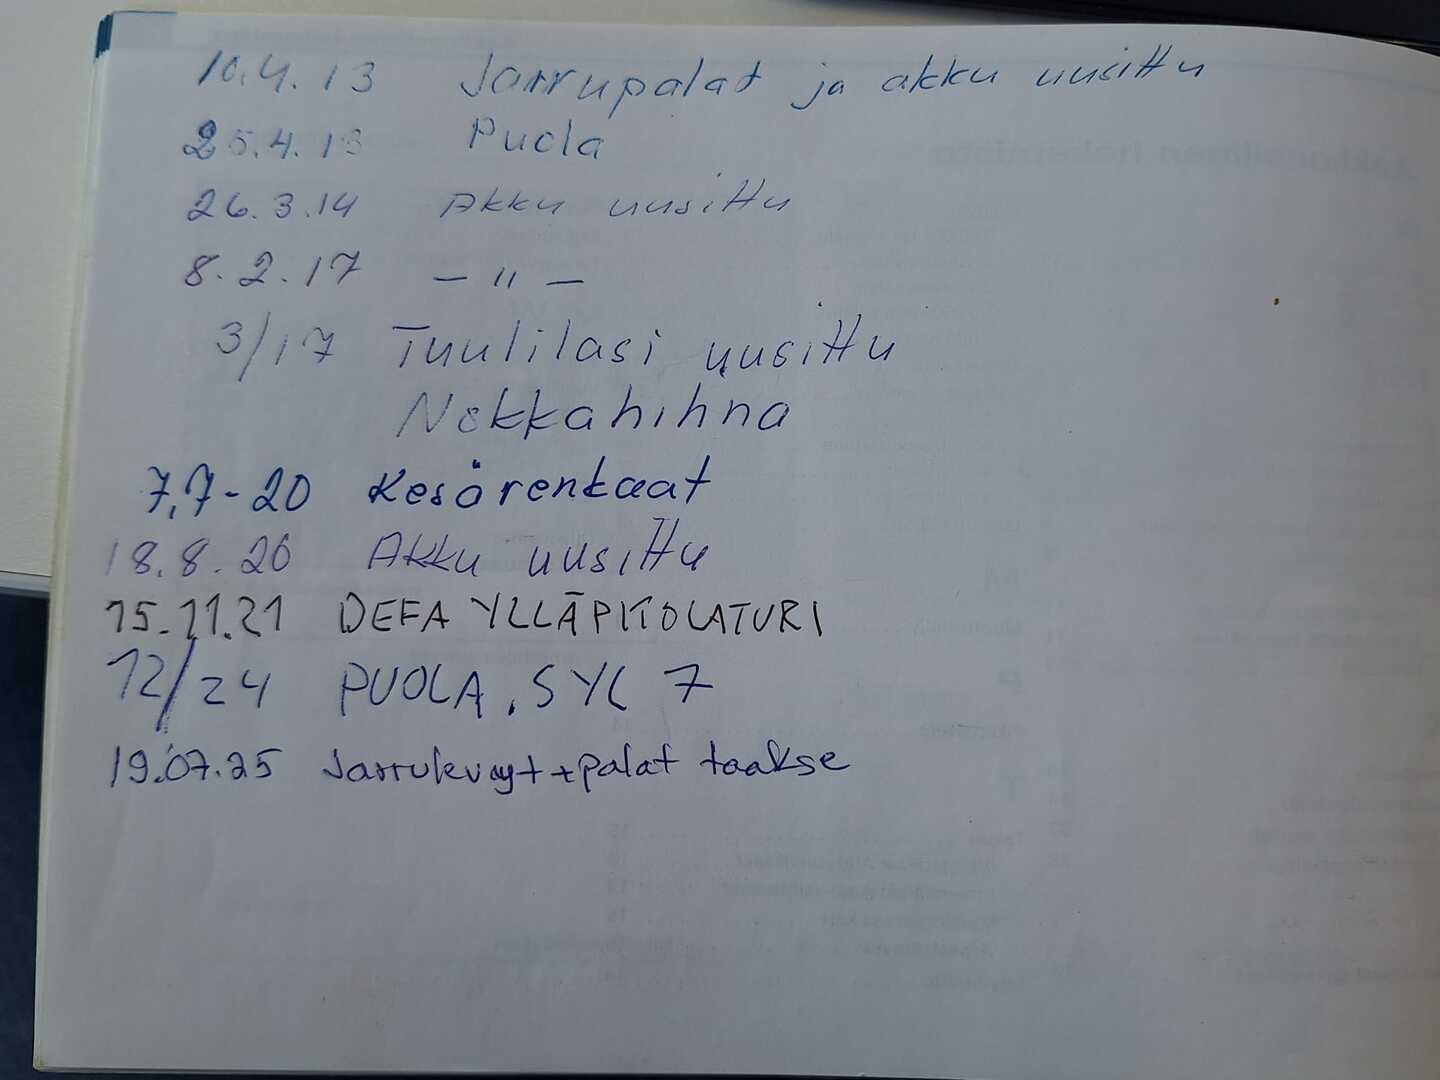 10.4.13 Jarrupalat ja akku uusittu
25.4.13 Puola
26.3.14 Akku uusittu
8.2.17 – " –
3/17 Tuulilasi uusittu
Nokkahihna
7,7-20 Kesärenkaat
18.8.20 Akku uusittu
15.11.21 DEFA YLLÄPITOLATURI
12/24 PUOLA, SYL 7
19.07.25 Jarrulevyt + palat taakse